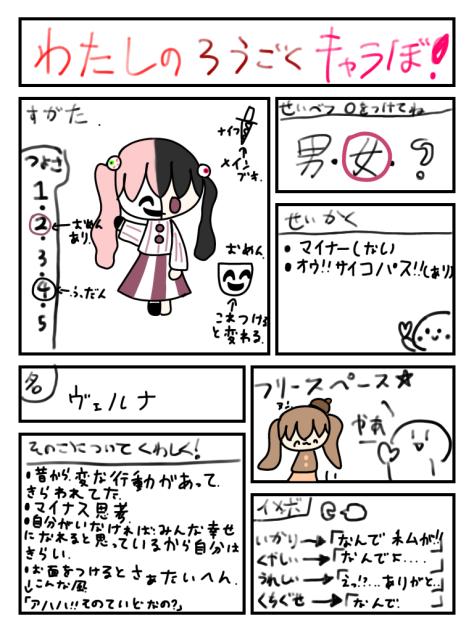 わたしの ろうごく キャラぼ!
すがた.
ナイフ
メイン
ブキ.
つよさ
1
2
おめん
あり.
3
4
ふだん
5
おめん.
これつける
と変わる.
せいべつ Oをつけてね
男・女・?
せいかく
・マイナーしない
・オウ!!サイコパス!!(しあり)
名
ヴェルナ
フリースペース★
やあ
そのこについてくわしく!
・昔から変な行動があって.
きらわれてた.
・マイナス思考
・自分がいなければみんな幸せ
になれると思っているから自分は
きらい.
・お面をつけるとさぁたいへん.
↓こんな風
「アハハ!!そのていどなの?」
イメボ
いかり→「なんで ネムが!!」
くやしい→「なんでよ....」
うれしい→「えっ!?...ありがと..」
くちぐせ→「なんで.」